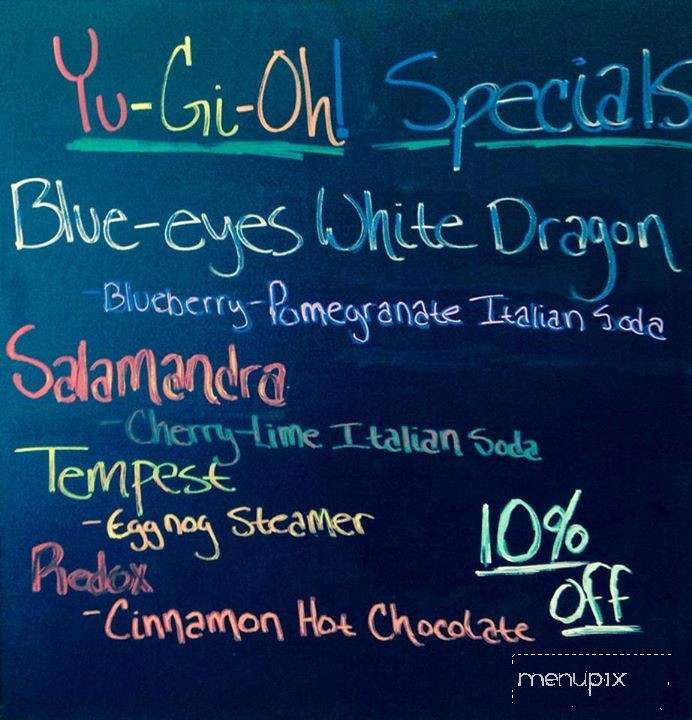 Yu-Gi-Oh! Specials
Blue-eyes White Dragon
-Blueberry-Pomegranate Italian Soda
Salamandra
-Cherry-Lime Italian Soda
Tempest
-Eggnog Steamer
Redox
-Cinnamon Hot Chocolate
10%
off
menupix